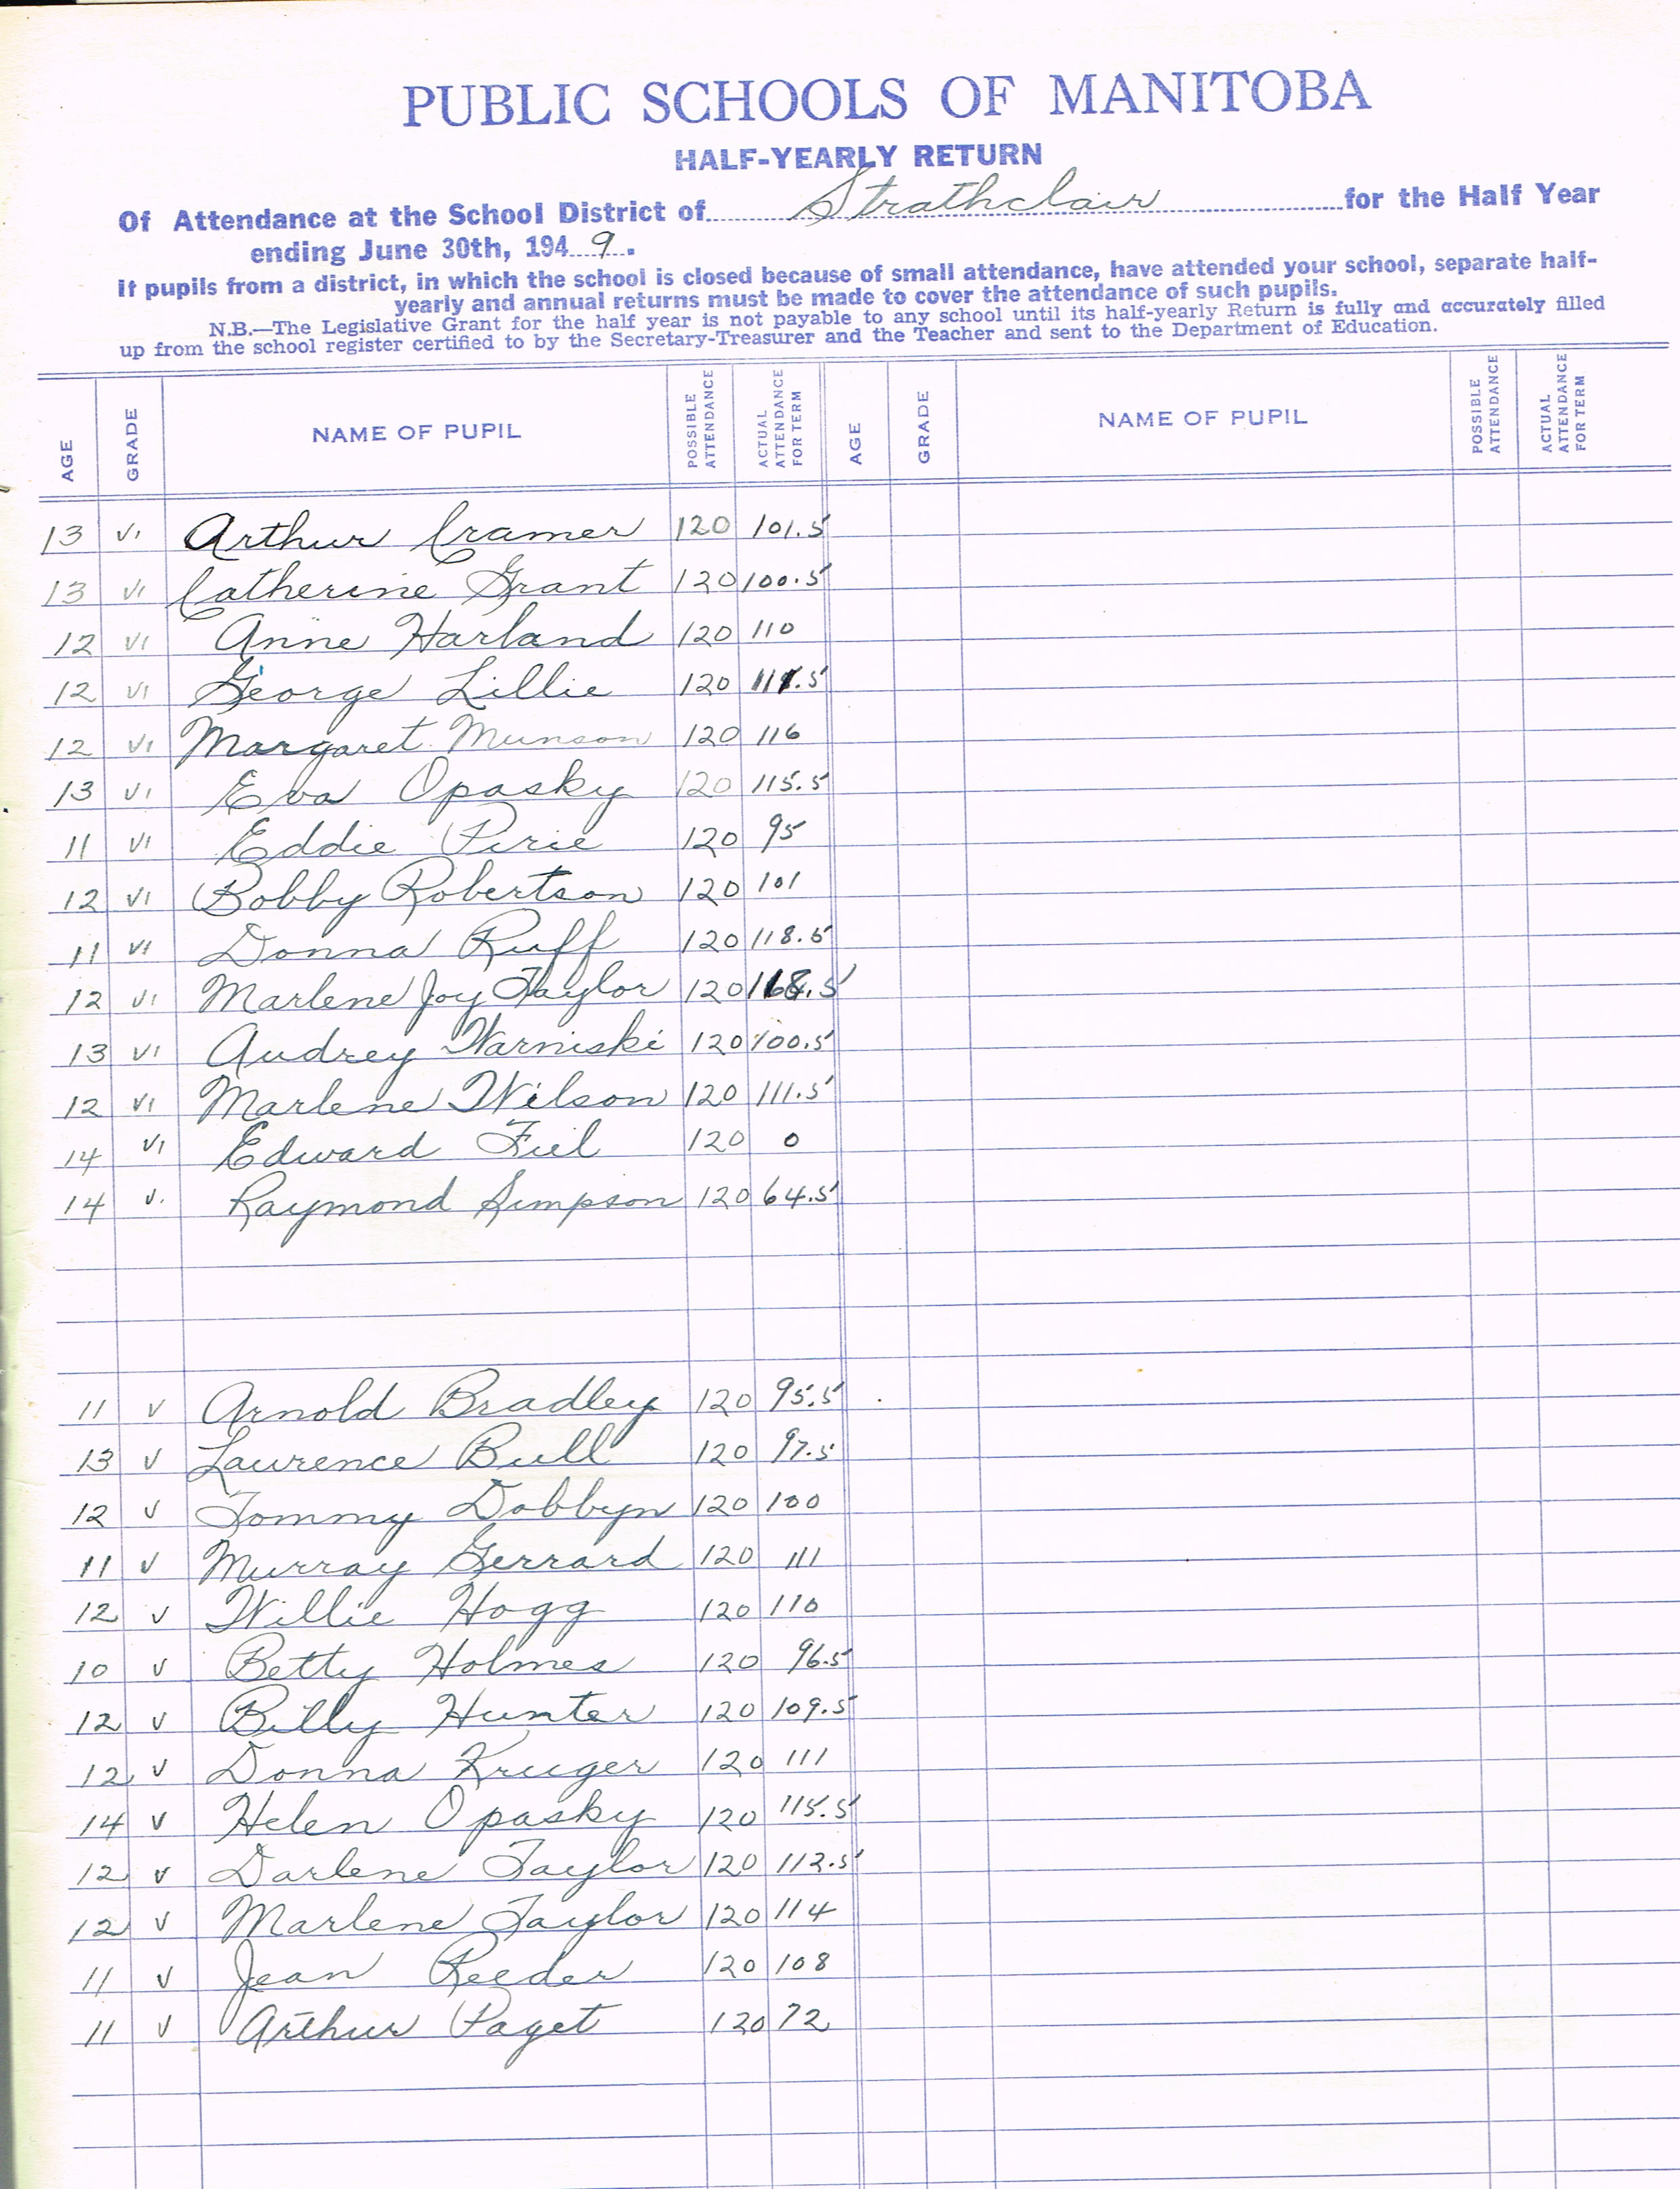 PUBLIC SCHOOLS OF MANITOBA
HALF-YEARLY RETURN
Of Attendance at the School District of Strathclair for the Half Year
ending June 30th, 1949.
If pupils from a district, in which the school is closed because of small attendance, have attended your school, separate half-
yearly and annual returns must be made to cover the attendance of such pupils.
N.B.—The Legislative Grant for the half year is not payable to any school until its half-yearly Return is fully and accurately filled
up from the school register certified to by the Secretary-Treasurer and the Teacher and sent to the Department of Education.
AGE GRADE NAME OF PUPIL POSSIBLE ATTENDANCE ACTUAL ATTENDANCE FOR TERM AGE GRADE NAME OF PUPIL POSSIBLE ATTENDANCE ACTUAL ATTENDANCE FOR TERM
13 VI Arthur Cramer 120 101.5
13 VI Catherine Grant 120 100.5
12 VI Anne Harland 120 110
12 VI George Lillie 120
12 VI Margaret Munson 120 116
13 VI Eva Opasky 120 115.5
11 VI Eddie Pirie 120 95
12 VI Bobby Robertson 120 101
11 VI Donna Ruff 120 118.5
12 VI Marlene Joy Taylor 120
13 VI Audrey Warniski 120 100.5
12 VI Marlene Wilson 120 111.5
14 VI Edward Fiel 120 0
14 V. Raymond Simpson 120 64.5
11 V Arnold Bradley 120 95.5
13 V Laurence Bull 120 97.5
12 V Tommy Dobbyn 120 100
11 V Murray Gerrard 120 111
12 V Willie Hogg 120 110
10 V Betty Holmes 120 96.5
12 V Billy Hunter 120 109.5
12 V Donna Kruger 120 111
14 V Helen Opasky 120 115.5
12 V Darlene Taylor 120 112.5
12 V Marlene Taylor 120 114
11 V Jean Reeder 120 108
11 V Arthur Paget 120 72